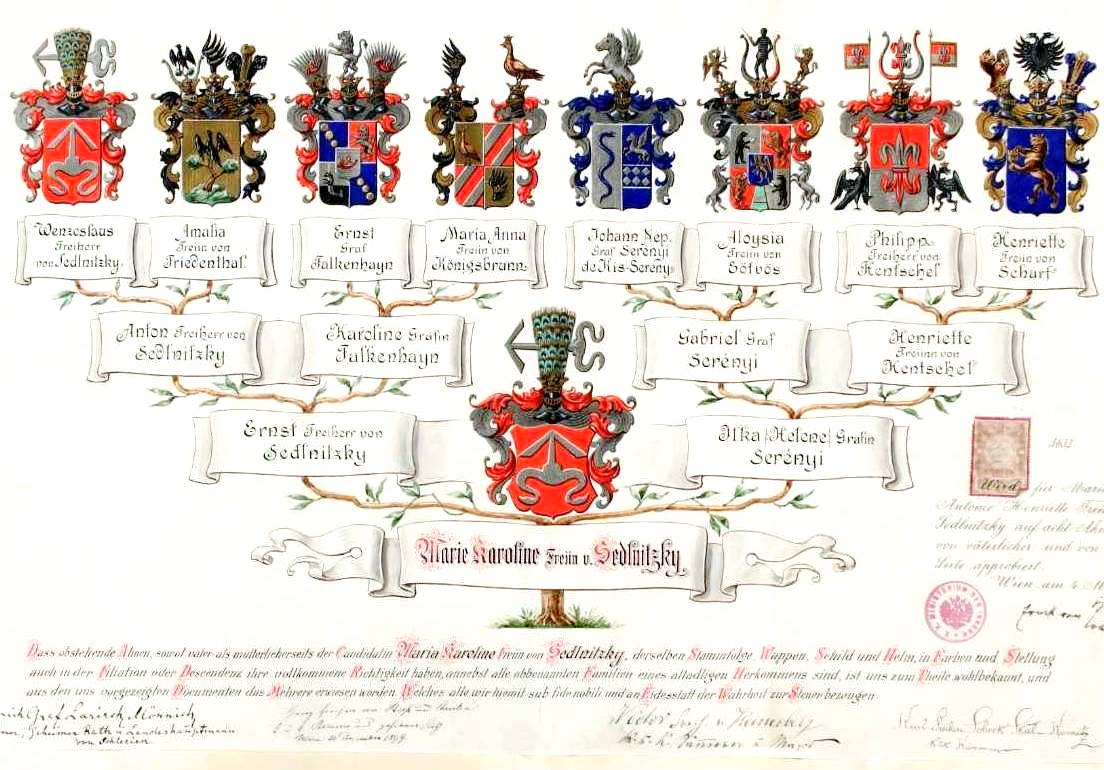 Wenzeslaus
Freiherr
von Sedlnitzky.
Amalia
Freiin von
Friedenthal.
Ernst
Graf
Falkenhayn
Maria Anna
Freiin von
Königsbrunn
Johann Nep.
Graf Serényi
de Kis-Serény
Aloysia
Freiin von
Eötvös
Philipp
Freiherr von
Hentschel
Henriette
Freiin von
Scharf
Anton Freiherr von
Sedlnitzky
Karoline Gräfin
Falkenhayn
Gabriel Graf
Serényi
Henriette
Freiinn von
Hentschel
Ernst Freiherr von
Sedlnitzky
Ilka (Helene) Gräfin
Serényi
Marie Karoline Freiin v. Sedlnitzky.
Wird für Marie
Antonie Henriette
Sedlnitzky auf acht
von väterlicher und von
Seite approbiert.
Wien am 4.
Dass obstehende Ahnen, sowol vater- als mutterlicherseits der Candidatin Maria Karoline Freiin von Sedlnitzky, derselben Stammfolge Wappen, Schild und Helm, in Farben und Stellung
auch in der Filiation oder Descendenz ihre vollkommene Richtigkeit haben, annebst alle obbenannten Familien eines altadligen Herkommens sind, ist uns zum Theile wohlbekannt, und
aus den uns vorgezeigten Documenten das Mehrere erwiesen worden. Welches alle wir hiemit sub fide nobili und an Eidesstatt der Wahrheit zur Steuer bezeugen.
Graf Larisch Mönnich
Geheimer Rath u Landeshauptmann
von Schlesien
K. u. K. Kämmerer u Major